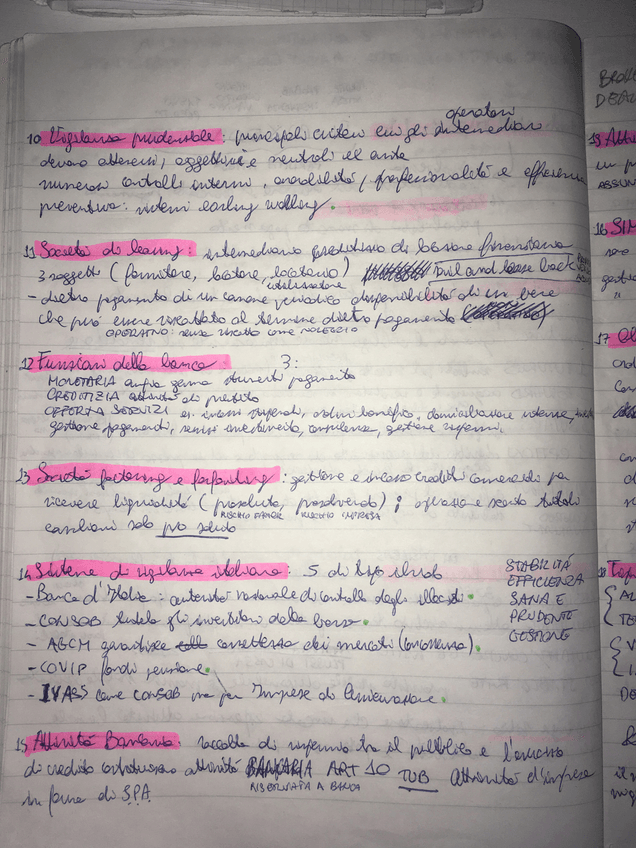 operatori
10 Vigilanza prudenziale: principali criteri cui gli intermediari
devono attenersi, oggettivi e neutrali ed evita
numerosi controlli interni, onorabilità / professionalità e efficienza
preventiva: sistemi
11 Società di leasing: intermediario creditizio di locazione finanziaria
3 soggetti (fornitore, locatore, locatario) and lease back
utilizzatore
- dietro pagamento di un canone periodico disponibilità di un bene
che può essere riscattato al termine dietro pagamento
OPERATIVO: senza riscatto come NOLEGGIO
12 Funzioni della banca 3:
MONETARIA ampia gamma strumenti pagamento
CREDITIZIA attività di prestito
OFFERTA SERVIZI es. incassi stipendi, ordini bonifico, domiciliazione utenze,
gestione pagamenti, servizi investimento, consulenza, gestione risparmi.
13 Società factoring e forfaiting: gestione e incasso crediti commerciali per
ricevere liquidità (prosoluto, prosolvendo); operazione sconto titoli
RISCHIO FACTOR RISCHIO IMPRESA
cambiari solo pro soluto
14 Sistema di vigilanza italiano: 5 di tipo ibrido
- Banca d'Italia: autorità nazionale di controllo degli illeciti
- CONSOB tutela gli investitori della borsa
- AGCM garantisce correttezza dei mercati (concorrenza)
- COVIP fondi pensione
- IVASS come CONSOB ma per Imprese di Assicurazione
STABILITÁ
EFFICIENZA
SANA E
PRUDENTE
GESTIONE
15 Attività Bancaria: raccolta di risparmio tra il pubblico e l'esercizio
di credito costituiscono attività BANCARIA ART 10 TUB attività d'impresa
RISERVATA A BANCA
in forma di S.P.A.
16 SIM
17
18